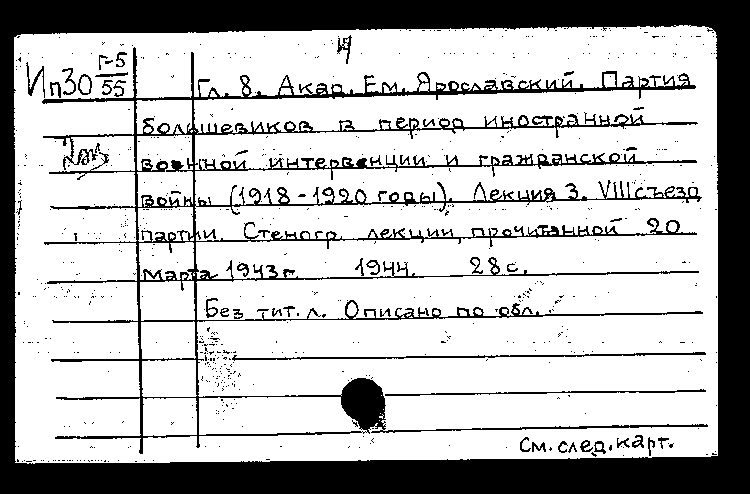 Ип30 Г-5/55
Гл. 8. Акад. Ем. Ярославский. Партия
большевиков в период иностранной
военной интервенции и гражданской
войны (1918-1920 годы). Лекция 3. VIII съезд
партии. Стеногр. лекции, прочитанной 20
марта 1943 г. 1944. 28 с.
Без тит. л. Описано по обл.
См. след. карт.